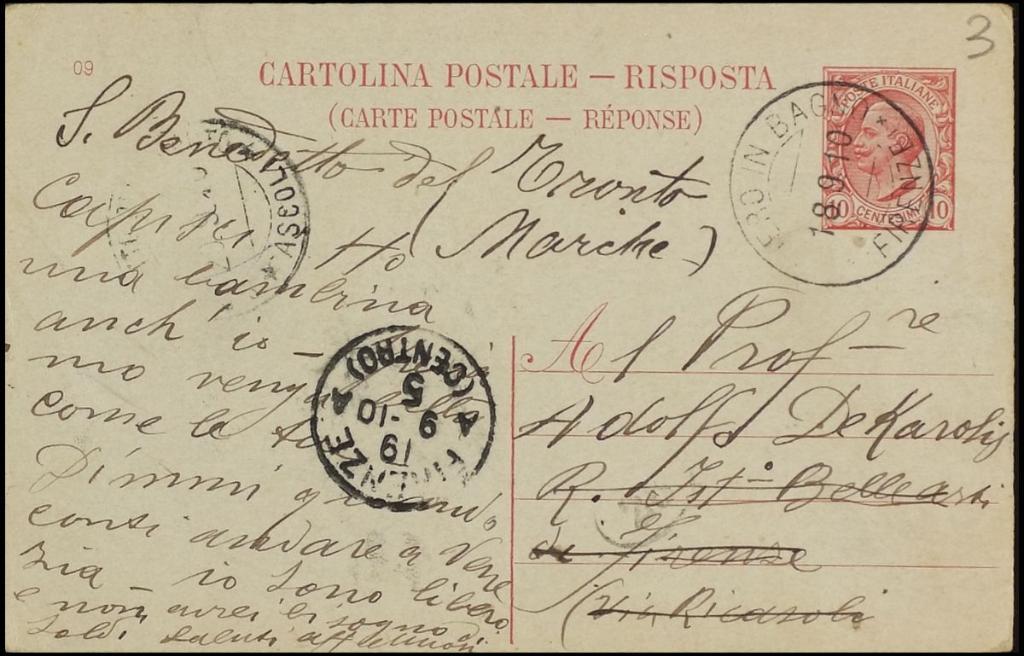 3
09
CARTOLINA POSTALE — RISPOSTA
(CARTE POSTALE — RÉPONSE)
POSTE ITALIANE
10 CENTESIMI 10
18.9.10
FIRENZE
S. Benedetto del Tronto
(Marche)
ASCOLI
una bambina
anch' io —
mo
come le
Dimmi quando
conti andare a Vene
zia — io sono libero
e non avrei bisogno di
soldi saluti
FIRENZE
(CENTRO)
5
19
9 - 10
Al Prof re
Adolfo DeKarolis
R. Ist° Belle arti
di Firenze
(Via Ricasoli